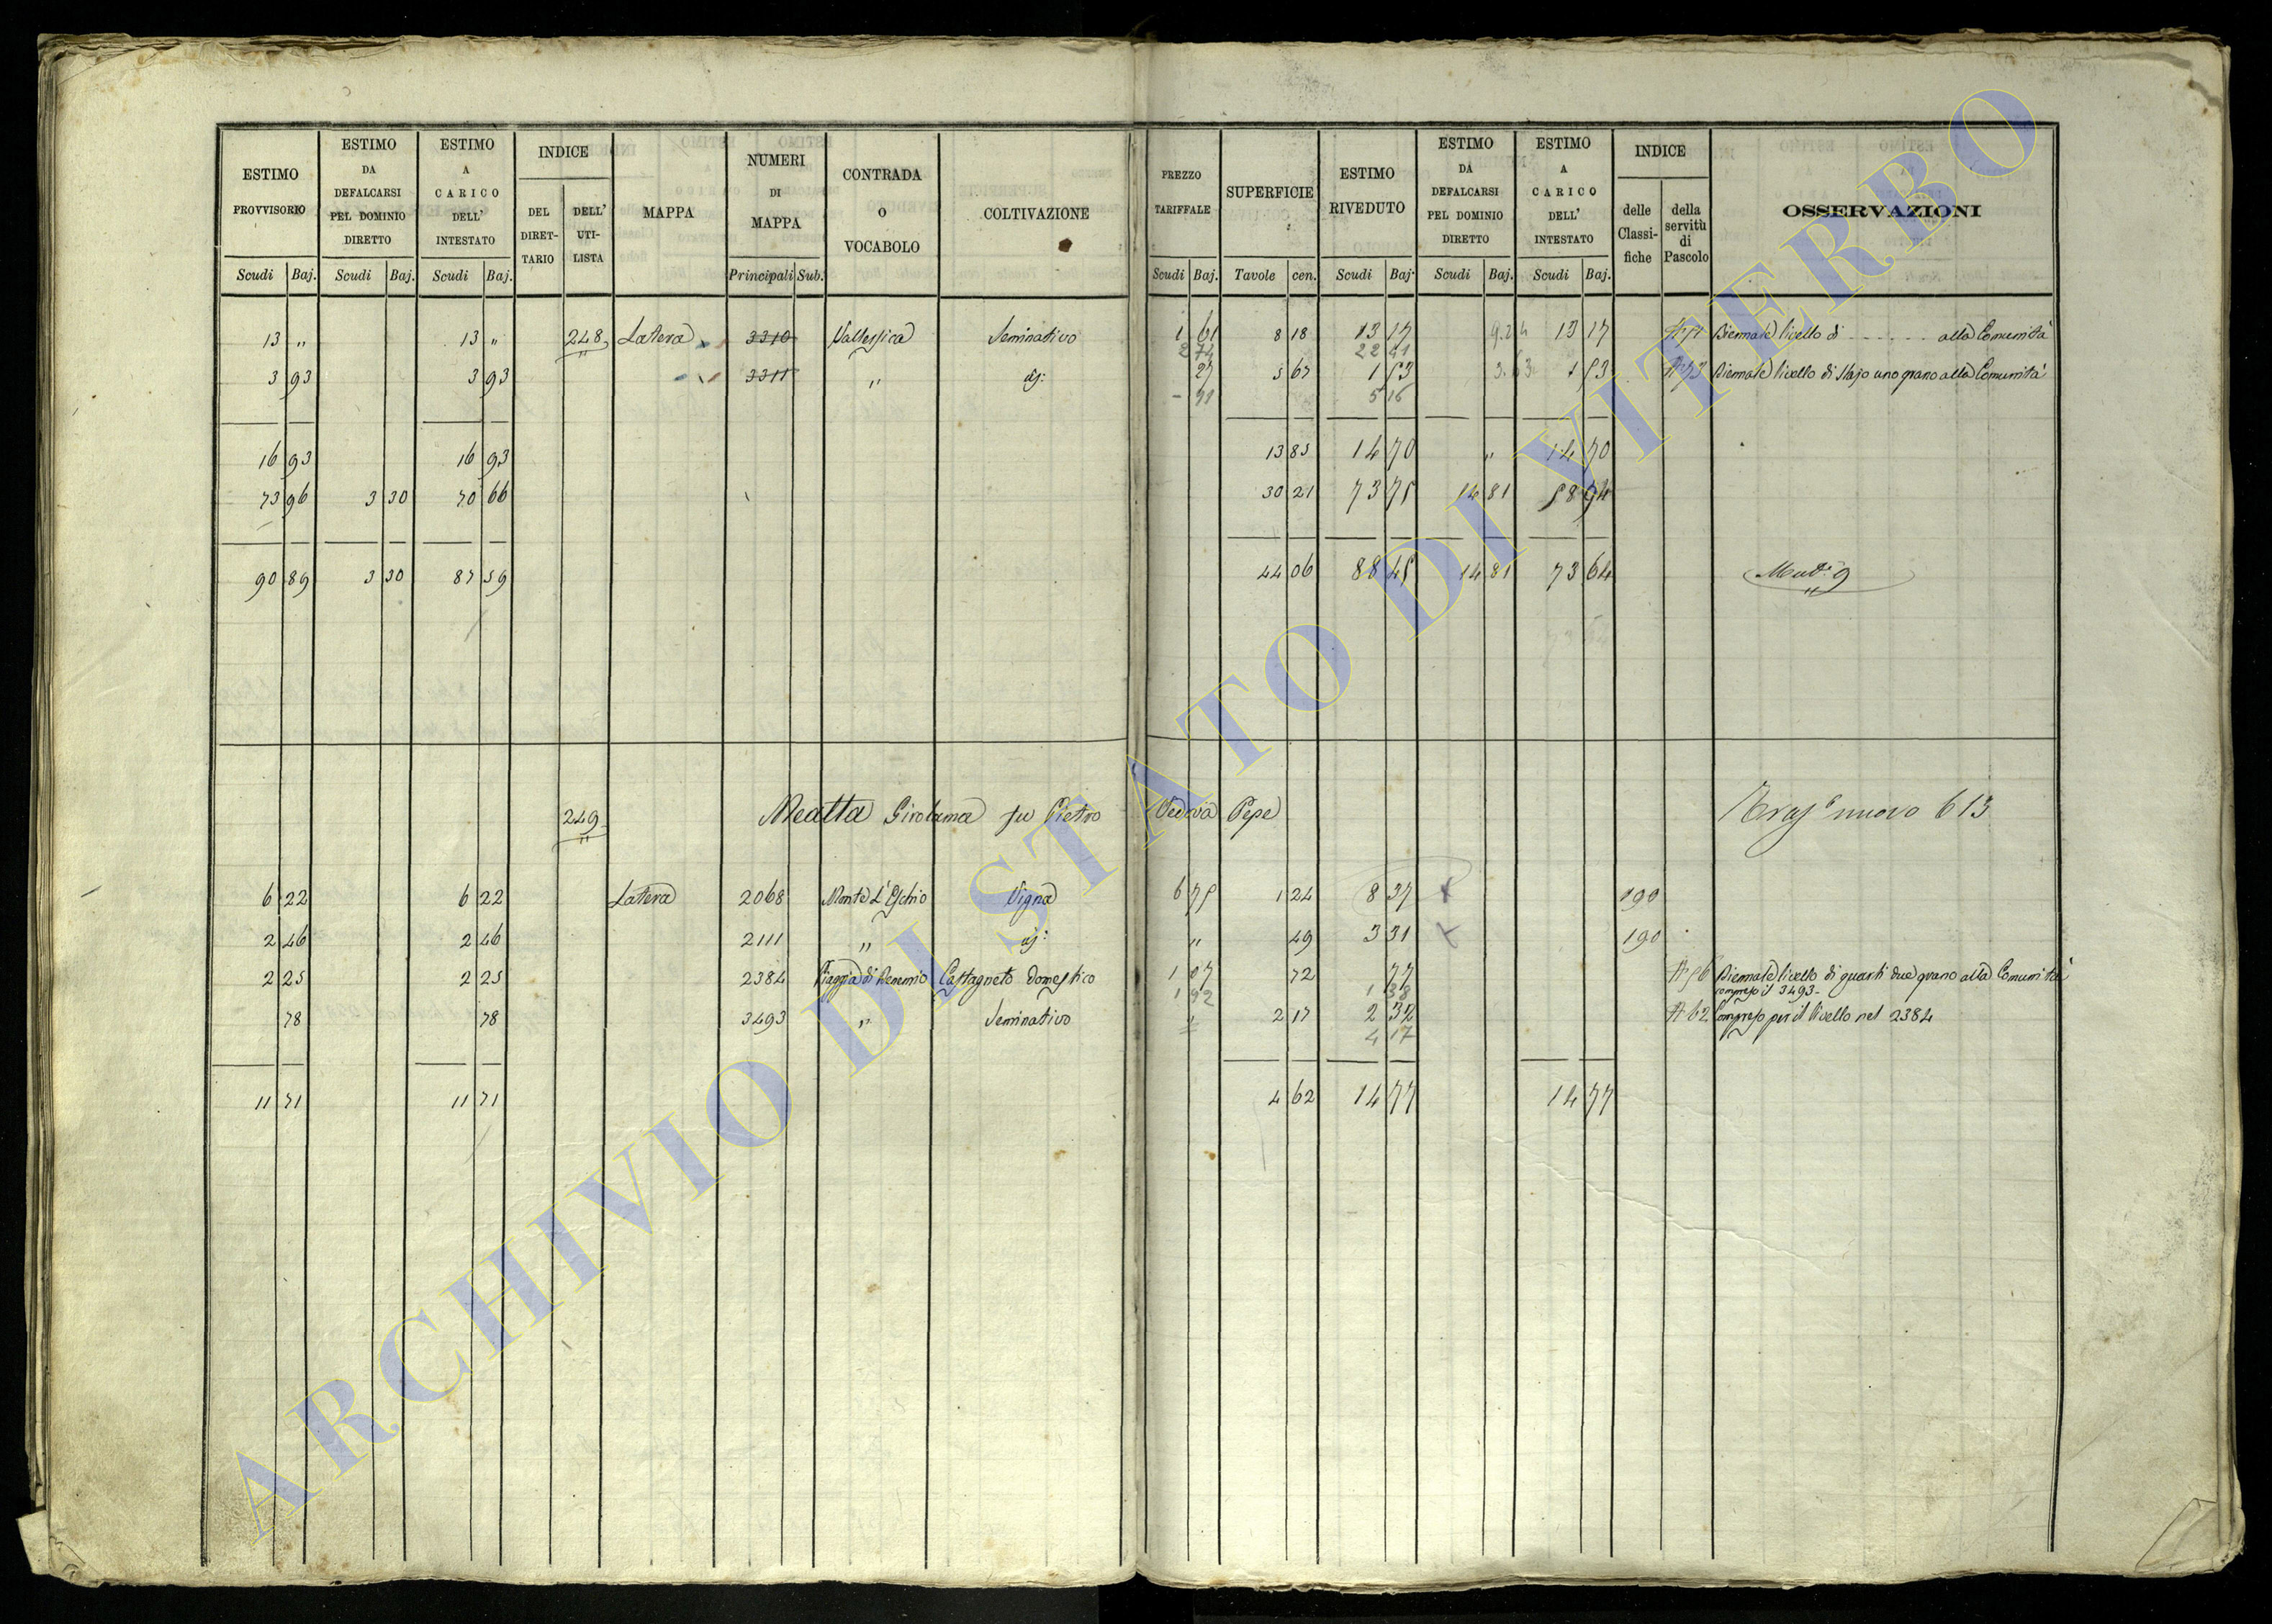 ESTIMO PROVVISORIO Scudi Baj.
ESTIMO DA DEFALCARSI PEL DOMINIO DIRETTO Scudi Baj.
ESTIMO A CARICO DELL' INTESTATO Scudi Baj.
INDICE DEL DIRET- TARIO DELL' UTI- LISTA
MAPPA
NUMERI DI MAPPA Principali Sub.
CONTRADA O VOCABOLO
COLTIVAZIONE
PREZZO TARIFFALE Scudi Baj.
SUPERFICIE Tavole cen.
ESTIMO RIVEDUTO Scudi Baj.
ESTIMO DA DEFALCARSI PEL DOMINIO DIRETTO Scudi Baj.
ESTIMO A CARICO DELL' INTESTATO Scudi Baj.
INDICE delle Classi- fiche della servitù di Pascolo
OSSERVAZIONI
13 " 13 " 248 Latera 3310 Seminativo 1 61 8 18 13 17 13 17 Biennale livello di ...... alla Comunità
2 74 22 41
3 93 3 93 3311 " id: 27 5 67 1 53 1 53 A 73 Biennale livello di stajo uno grano alla Comunità
- 91 5 16
16 93 16 93 13 85 14 70 " 14 70
73 96 3 30 70 66 30 21 73 75 14 81 58 94
90 89 3 30 87 59 44 06 88 45 14 81 73 64
249 Meatta Girolama fu Pietro Vedova Pepe nuovo 613
6 22 6 22 Latera 2068 Monte L'Eschio Vigna 6 75 1 24 8 37 190
2 46 2 46 2111 " id: " 49 3 31 190
2 25 2 25 2384 Castagneto domestico 1 07 72 77 A 56 Biennale livello di quarti due grano alla Comunità
1 92 1 38 compreso il 3493-
78 78 3493 " Seminativo " 2 17 2 32 A 62 Compreso per il livello nel 2384
4 17
11 71 11 71 4 62 14 77 14 77
ARCHIVIO DI STATO DI VITERBO